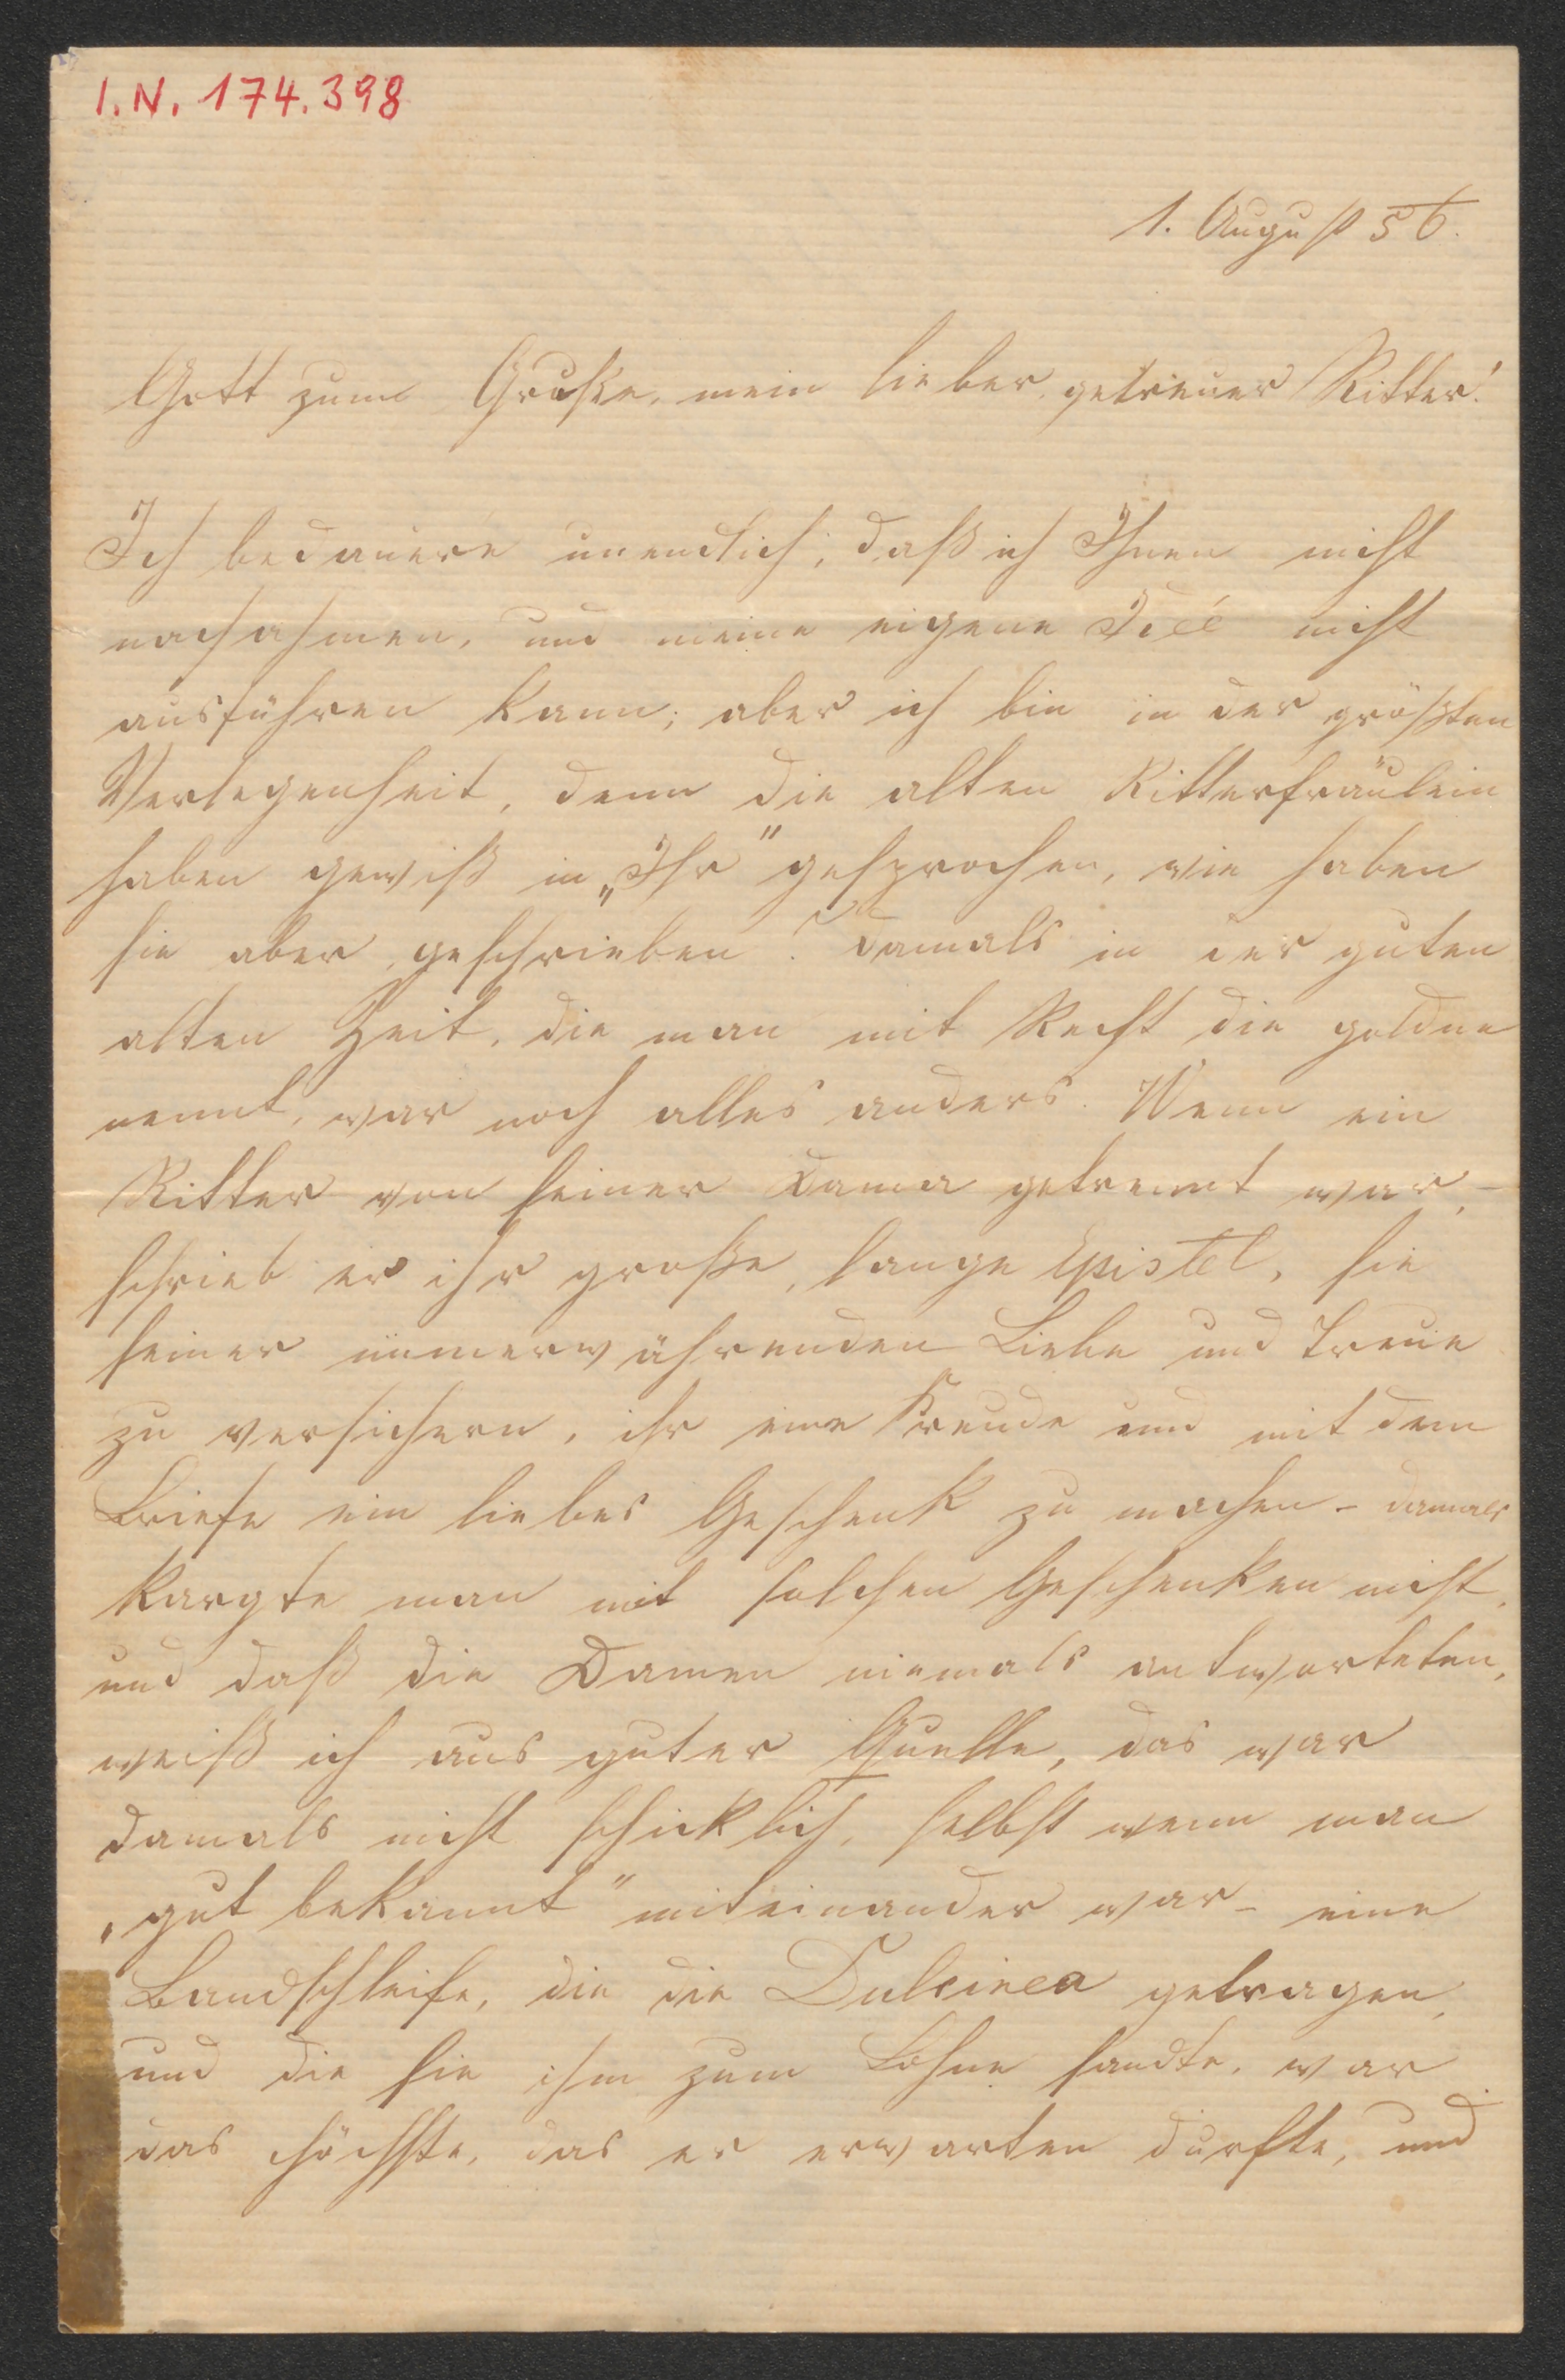 I.N. 174.398
1. August 56.
Gott zum Gruße, mein lieber, getreuer Ritter!
Ich bedauere unendlich, daß ich Ihnen nicht
nachahmen, und meine eigene Idee nicht
ausführen kann; aber ich bin in der größten
Verlegenheit, denn die alten Ritterfräulein
haben gewiß in „Ihr" gesprochen, wie haben
sie aber geschrieben? Damals in der guten
alten Zeit, die man mit Recht die goldne
nennt, war noch alles anders. Wenn ein
Ritter von seiner Dame getrennt war, –
schrieb er ihr große, lange Epistel, sie
seiner immerwährenden Liebe und Treue
zu versichern, ihr eine Freude und mit dem
Briefe ein liebes Geschenk zu machen – damals
kargte man mit solchen Geschenken nicht,
und daß die Damen niemals antworteten,
weiß ich aus guter Quelle, das war
damals nicht schicklich, selbst wenn man
„gut bekannt" miteinander war – eine
Bandschleife, die die Dulcinea getragen,
und die sie ihm zum Lohne sandte, war
das höchste, das er erwarten durfte, und